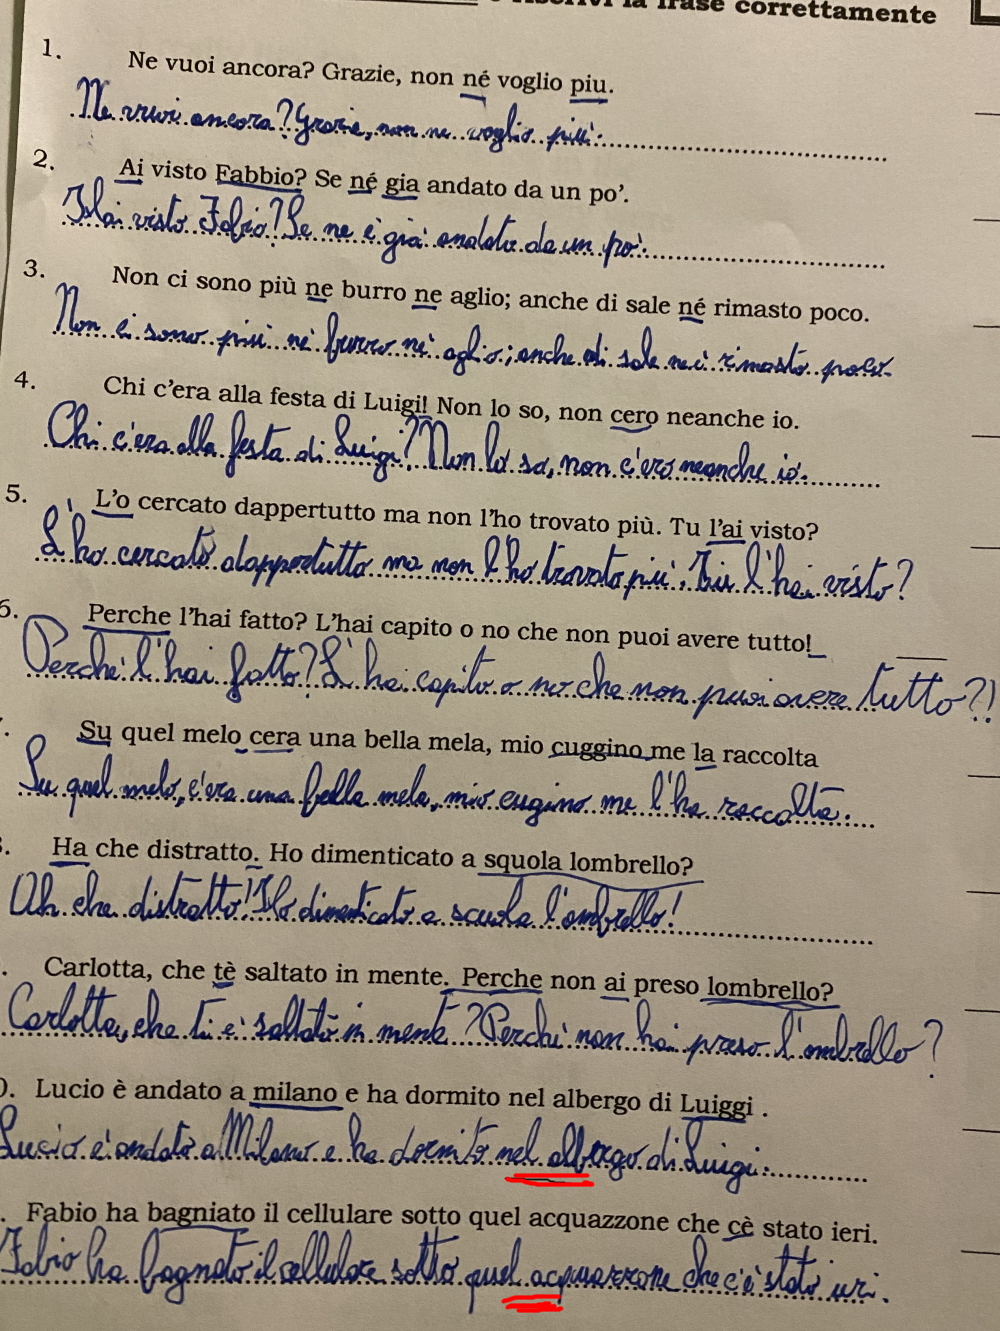 riscrivi la frase correttamente
1. Ne vuoi ancora? Grazie, non né voglio piu.
Ne vuoi ancora? Grazie, non ne voglio più.
2. Ai visto Fabbio? Se né gia andato da un po'.
Hai visto Fabio? Se ne è già andato da un po'.
3. Non ci sono più ne burro ne aglio; anche di sale né rimasto poco.
Non ci sono più né burro né aglio; anche di sale ne è rimasto poco.
4. Chi c'era alla festa di Luigi! Non lo so, non cero neanche io.
Chi c'era alla festa di Luigi? Non lo so, non c'ero neanche io.
5. L'o cercato dappertutto ma non l'ho trovato più. Tu l'ai visto?
L'ho cercato dappertutto ma non l'ho trovato più. Tu l'hai visto?
6. Perche l'hai fatto? L'hai capito o no che non puoi avere tutto!
Perché l'hai fatto? L'hai capito o no che non puoi avere tutto?!
. Su quel melo cera una bella mela, mio cuggino me la raccolta
Su quel melo, c'era una bella mela, mio cugino me l'ha raccolta.
. Ha che distratto. Ho dimenticato a squola lombrello?
Ah che distratto! Ho dimenticato a scuola l'ombrello!
. Carlotta, che tè saltato in mente. Perche non ai preso lombrello?
Carlotta, che ti è saltato in mente? Perché non hai preso l'ombrello?
0. Lucio è andato a milano e ha dormito nel albergo di Luiggi .
Lucio è andato a Milano e ha dormito nel albergo di Luigi.
. Fabio ha bagniato il cellulare sotto quel acquazzone che cè stato ieri.
Fabio ha bagnato il cellulare sotto quel acquazzone che c'è stato ieri.